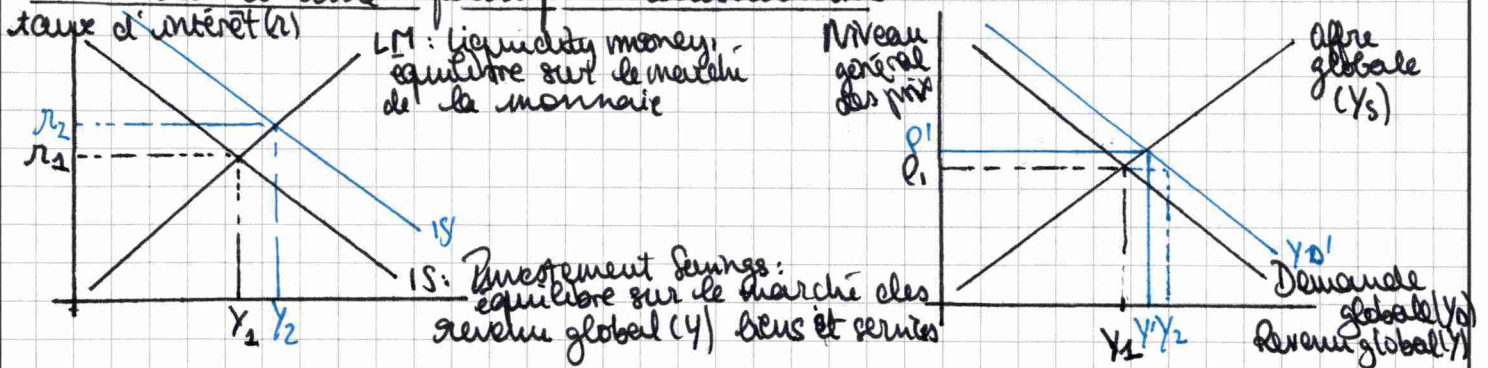 taux d'intérêt (r)
LM : Liquidity money,
équilibre sur le marché
de la monnaie
r2
r1
IS'
IS : Investement Savings :
équilibre sur le marché des
revenu global (Y) biens et services
Y1 Y2
Niveau
général
des prix
offre
globale
(Ys)
P'
P1
YD'
Demande
globale (YD)
Y1 Y' Y2
Revenu global (Y)